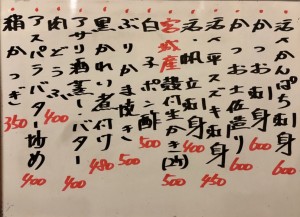 活〆かんぱち刺身 600
かつお刺身 600
かつお土佐造り 600
活〆平スズキ刺身 450
活帆立刺身 400
宮城産殻付生かき 500
白子ポン酢 500
ぶりかま焼き 500
黒かれい煮付け 480
アサリ酒蒸し・バター 400
肉どうふ 400
アスパラバター炒め 400
かつぎ 350